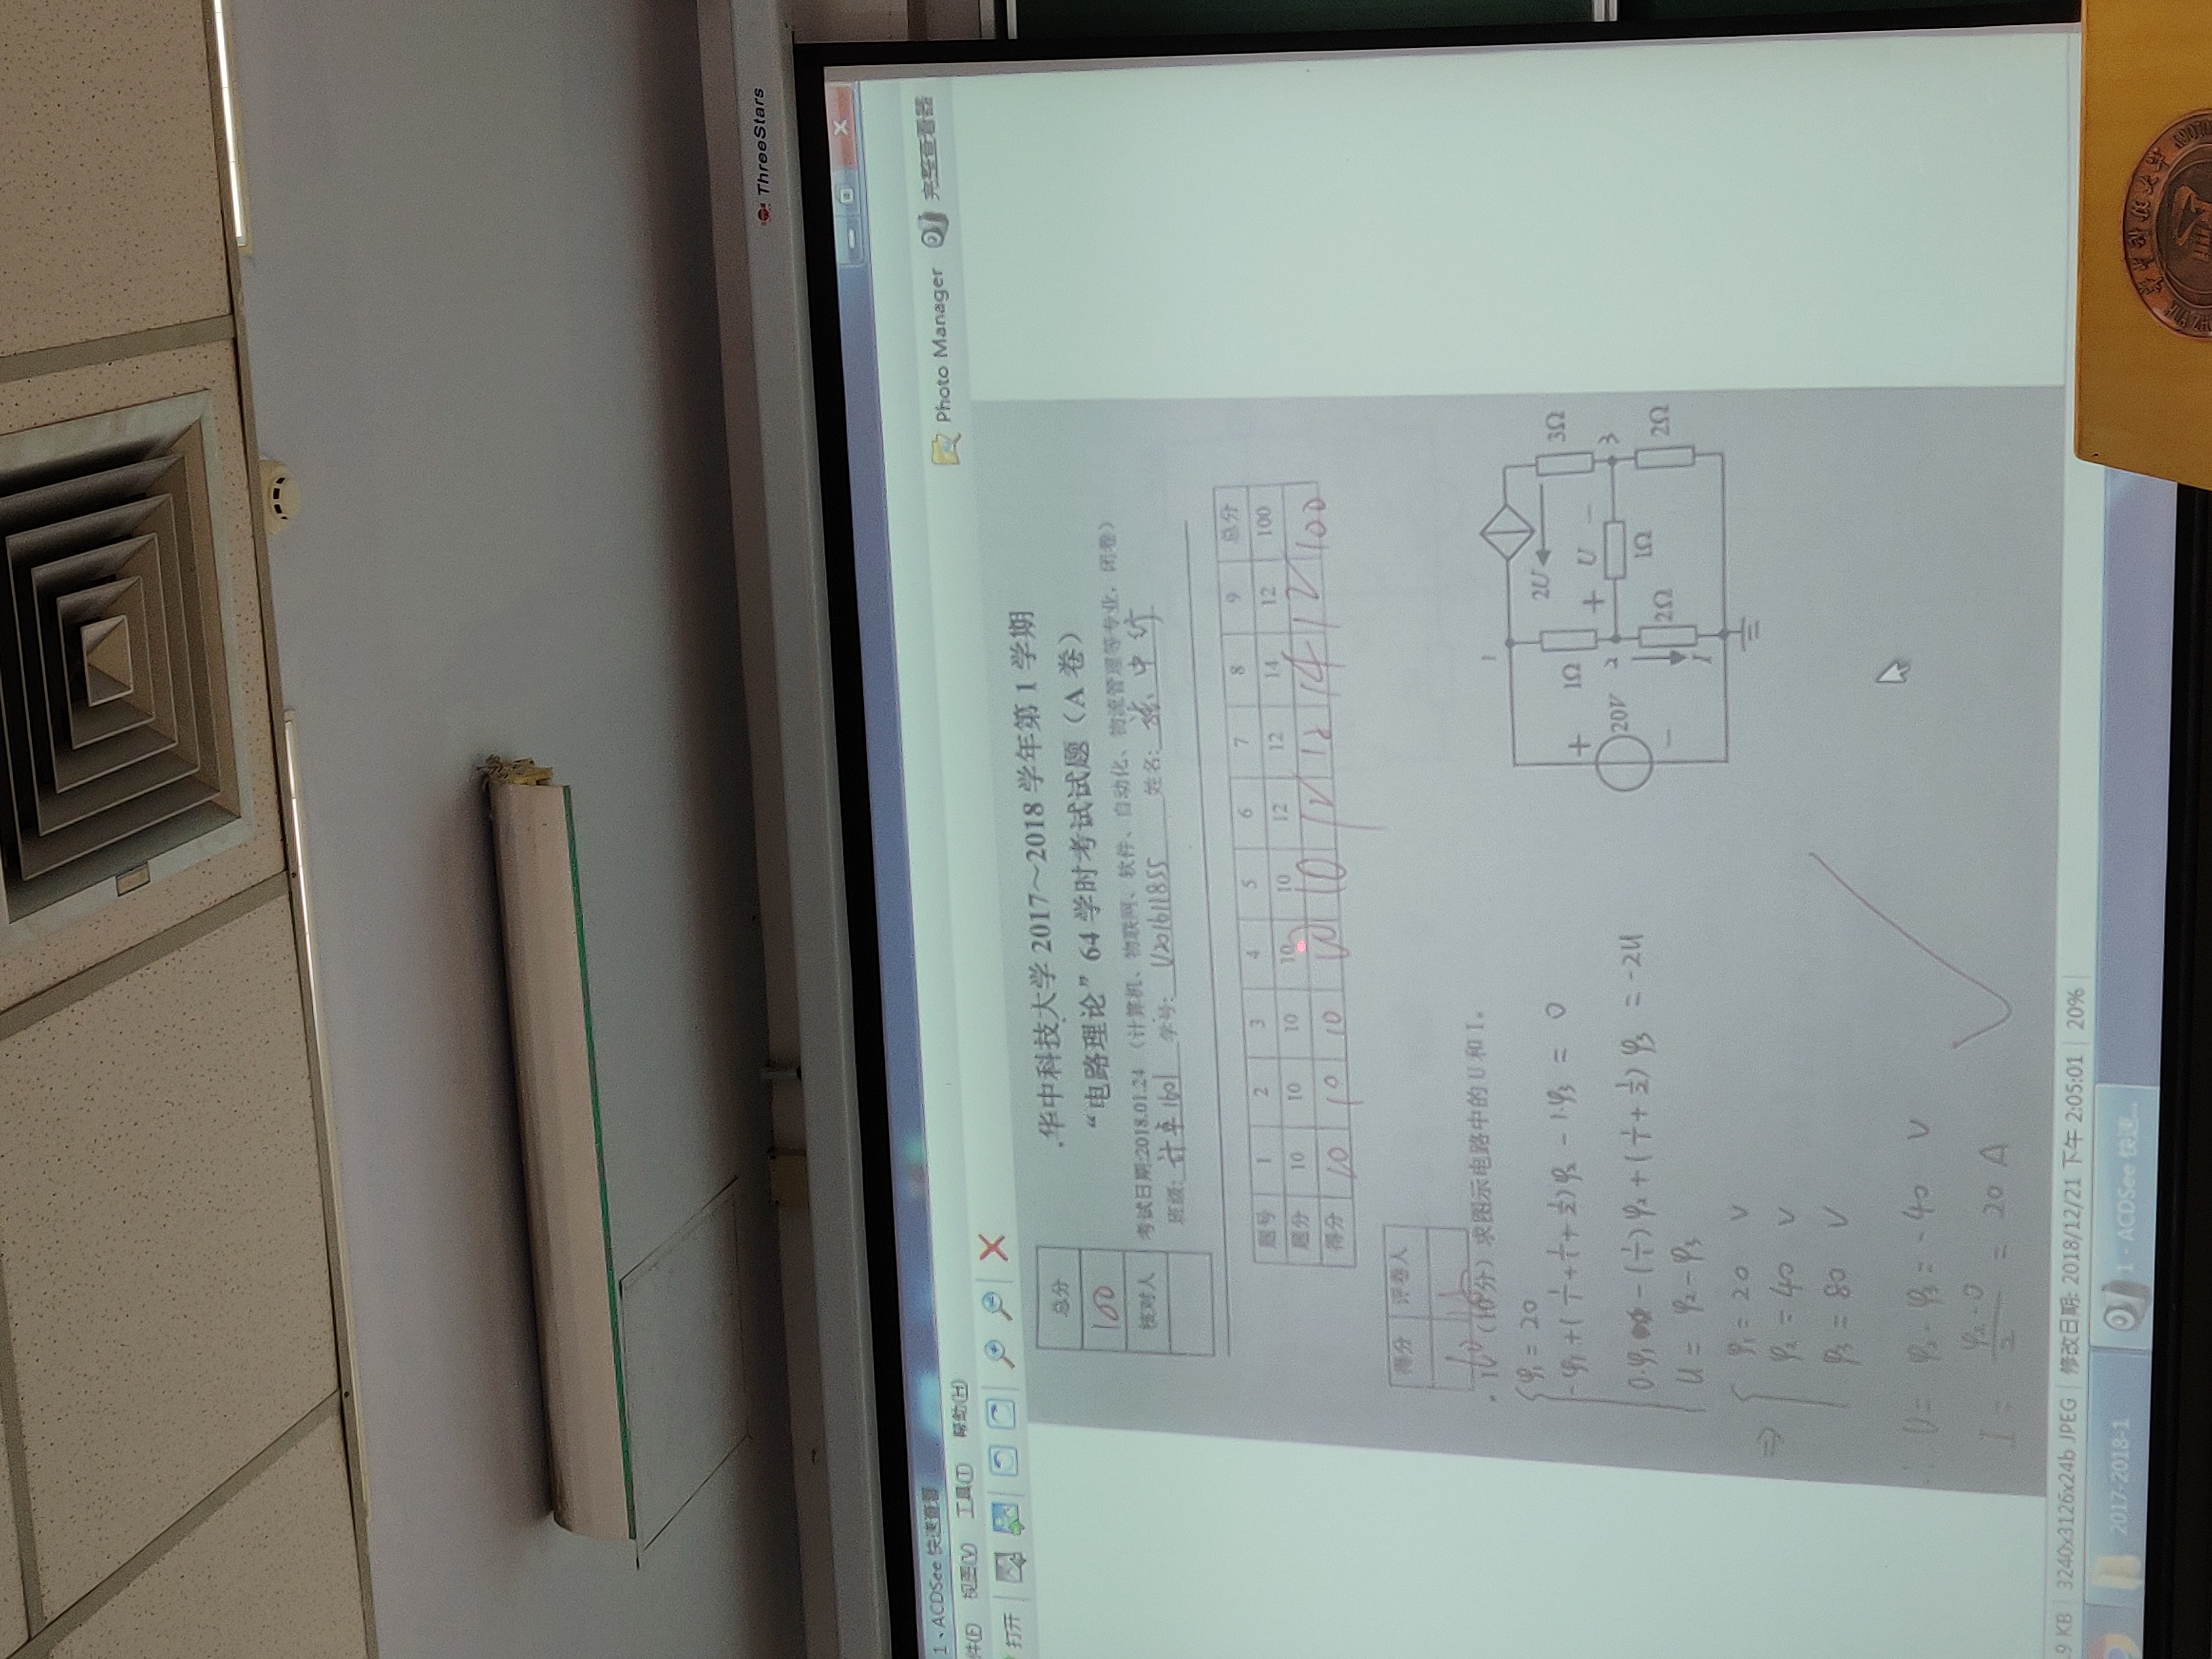 ThreeStars
1、ACDSee 快速查看
件(F) 视图(V) 工具(T) 帮助(H)
Photo Manager 完整查看器
打开
总分
100
核对人
华中科技大学 2017～2018 学年第 1 学期
“电路理论” 64 学时考试试题（A 卷）
考试日期:2018.01.24 （计算机、物联网、软件、自动化、物流管理等专业，闭卷）
班级: 计卓1601 学号: U201611855 姓名:
题号 1 2 3 4 5 6 7 8 9 总分
题分 10 10 10 10 10 12 12 14 12 100
得分 10 10 10 10 10 12 12 14 12 100
得分 评卷人
10
1、（10分）求图示电路中的 U 和 I。
φ₁ = 20
-φ₁ + (1/1 + 1/1 + 1/2)φ₂ - 1·φ₃ = 0
0·φ₁ - (1/1)φ₂ + (1/1 + 1/2)φ₃ = -2U
U = φ₂ - φ₃
⇒ φ₁ = 20 V
φ₂ = 40 V
φ₃ = 80 V
∴ U = φ₂ - φ₃ = -40 V
I = (φ₂ - 0)/2 = 20 A
1
2U
1Ω
3Ω
+ U -
+
20V
2
3
1Ω
-
2Ω
2Ω
I
.9 KB 3240x3126x24b JPEG 修改日期: 2018/12/21 下午 2:05:01 20%
2017-2018-1
1 - ACDSee 快速...